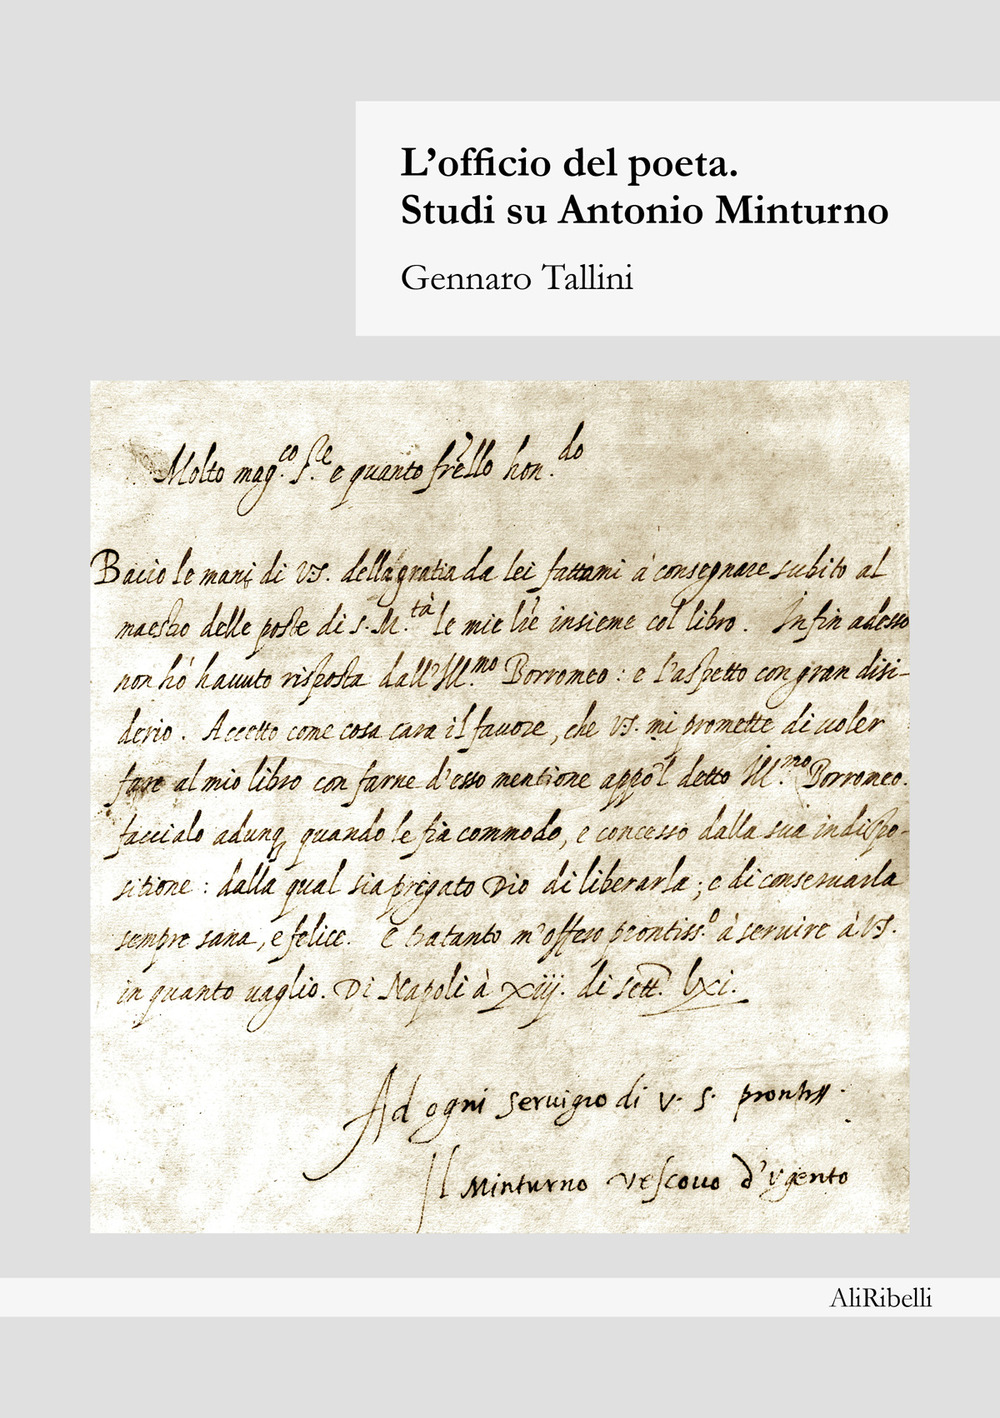 L'officio del poeta.
Studi su Antonio Minturno
Gennaro Tallini
Molto mag.co S.re e quanto frello hon.do
Bacio le mani di VS. della gratia da lei fattami à consegnare subito al
maestro delle poste di S. M.tà le mie lre insieme col libro. Infin adesso
non hò hauuto risposta dall'Ill.mo Borromeo: e l'aspetto con gran disi-
derio. Accetto come cosa cara il fauore, che VS. mi promette di uoler
fare al mio libro con farne d'esso mentione appo'l detto Ill.mo Borromeo.
facciale adunq quando le fia commodo, e concesso dalla sua indispo-
sitione: dalla qual sia pregato Dio di liberarla; e di conseruarla
sempre sana, e felice. e tratanto m'offero prontiss.o à seruire à VS.
in quanto uaglio. Di Napoli à xiij. di sett. lxi.
Ad ogni seruigio di V. S. prontiss.
Il Minturno Vescouo d'Vgento
AliRibelli